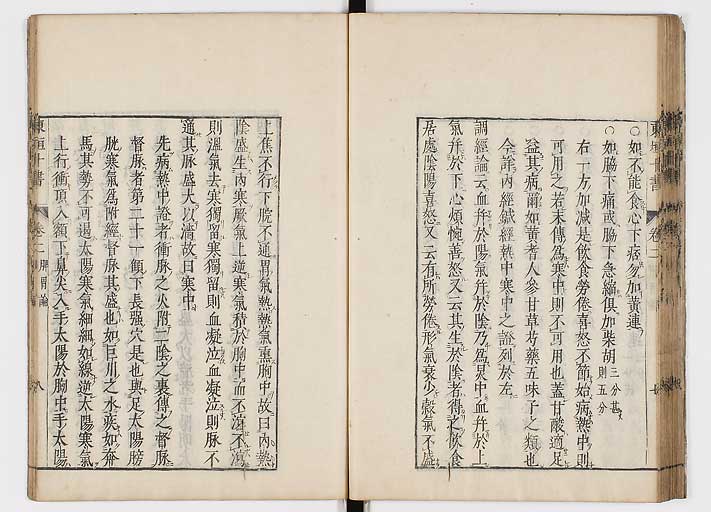 東垣十書
卷二
○如不能食心下痞勿加黃連
○如脇下痛或脇下急縮俱加柴胡三分甚則五分
右一方加減是飲食勞倦喜怒不節始病熱中則
可用之若末傳為寒中則不可用也蓋甘酸適足
益其病爾如黃耆人參甘草芍藥五味子之類也
今詳內經鍼經熱中寒中之證列於左
調經論云血并於陽氣并於陰乃為炅中血并於上
氣并於下心煩惋善怒又云其生於陰者得之飲食
居處陰陽喜怒又云有所勞倦形氣衰少穀氣不盛
上焦不行下脘不通胃氣熱熱氣熏胸中故曰內熱
陰盛生內寒厥氣上逆寒氣積於胸中而不瀉不瀉
則溫氣去寒獨留寒獨留則血凝泣血凝泣則脈不
通其脈盛大以濇故曰寒中
先病熱中證者衝脈之火附二陰之裏傳之督脈
督脈者第二十一顀下長強穴是也與足太陽膀
胱寒氣為附經督脈其盛也如巨川之水疾如奔
馬其勢不可遏太陽寒氣細細如線逆太陽寒氣
上行衝頂入額下鼻尖入手太陽於胸中手太陽
東垣十書
卷二
脾胃論
八